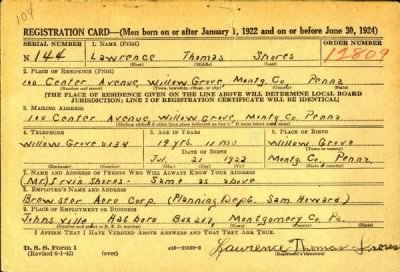 104
REGISTRATION CARD—(Men born on or after January 1, 1922 and on or before June 30, 1924)
SERIAL NUMBER
1. NAME (Print)
ORDER NUMBER
N 144
Lawrence Thomas Shores
12809
(First) (Middle) (Last)
2. PLACE OF RESIDENCE (Print)
100 Center Avenue, Willow Grove, Montg. Co. Penna
(Number and street) (Town, township, village, or city) (County) (State)
[THE PLACE OF RESIDENCE GIVEN ON THE LINE ABOVE WILL DETERMINE LOCAL BOARD
JURISDICTION; LINE 2 OF REGISTRATION CERTIFICATE WILL BE IDENTICAL]
3. MAILING ADDRESS
100 Center Avenue, Willow Grove, Montg. Co. Penna.
4. TELEPHONE
5. AGE IN YEARS
6. PLACE OF BIRTH
Willow Grove 0134
19 yrs. 11 mo
Willow Grove
DATE OF BIRTH
Jul. 21 1922
Montg. Co. Penna.
7. NAME AND ADDRESS OF PERSON WHO WILL ALWAYS KNOW YOUR ADDRESS
(Mr.) Irvin Shores - Same as above
8. EMPLOYER'S NAME AND ADDRESS
Brewster Aero Corp. (Planning Dept. Sam Howard)
9. PLACE OF EMPLOYMENT OR BUSINESS
Johnsville Hatboro Box 217, Montgomery Co. Pa.
I AFFIRM THAT I HAVE VERIFIED ABOVE ANSWERS AND THAT THEY ARE TRUE.
D. S. S. Form 1
(Revised 6-1-42) (over)
Lawrence Thomas Shores